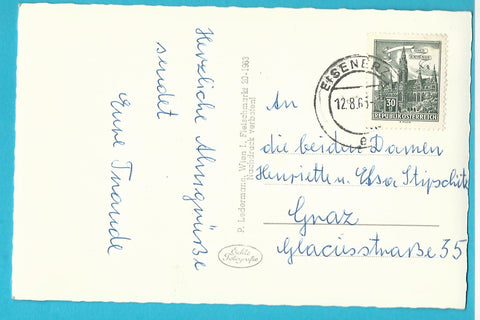 Herzliche Almgrüße
sendet
Eure Traude
P. Ledermann, Wien I., Fleischmarkt 20 - 1963
Nachdruck verboten!
Echte
Fotografie
EISENERZ
12.8.6
30
REPUBLIK ÖSTERREICH
An
die beiden Damen
Henriette u. Elsa Stipschitz
Graz
Glacisstraße 35